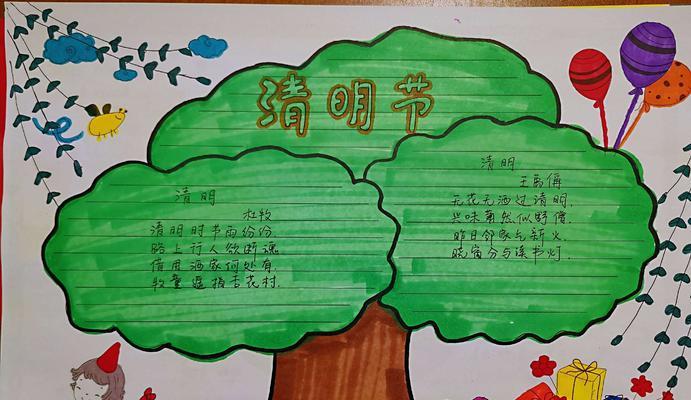 清明节
清明
杜牧
清明时节雨纷纷
路上行人欲断魂
借问酒家何处有
牧童遥指杏花村.
清明
王禹偁
无花无酒过清明,
兴味萧然似野僧.
昨日邻家乞新火,
晓窗分与读书灯.